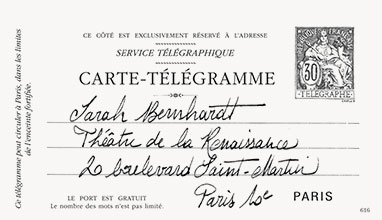 CE CÔTÉ EST EXCLUSIVEMENT RÉSERVÉ À L'ADRESSE
SERVICE TÉLÉGRAPHIQUE
CARTE-TÉLÉGRAMME
30
TÉLÉGRAPHE
Sarah Bernhardt
Théâtre de la Renaissance
20 boulevard Saint-Martin
Paris 10e
PARIS
LE PORT EST GRATUIT
Le nombre des mots n'est pas limité.
656
Ce télégramme peut circuler à Paris, dans les limites
de l'enceinte fortifiée.